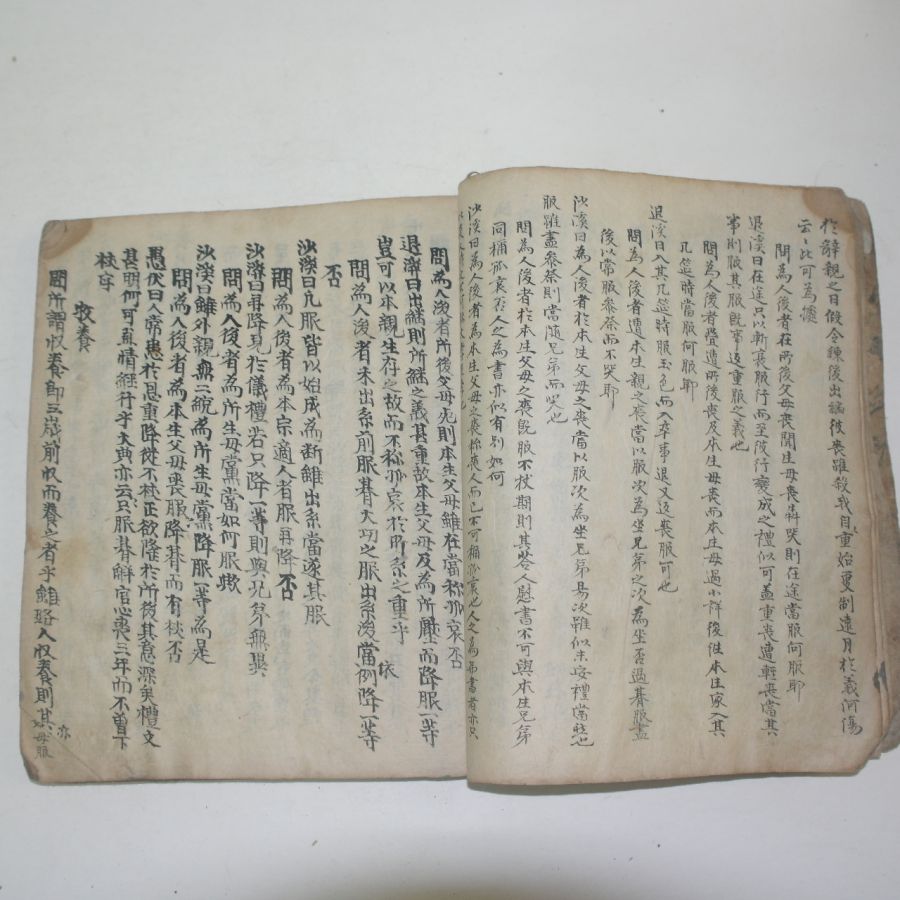 於辭親之日假令練後出繼彼喪雖殺我自重始更制遠月於義何傷
云〻此可爲據
問爲人後者在所後父母喪聞生母喪犇哭則在途當服何服耶
退溪曰在途只以斬喪服行而至彼行變成之禮似可盖重喪遭輕喪當其
事則服其服旣事返重服之義也
問爲人後者疊遭所後喪及本生母喪而本生母過小祥後往本生家入其
几筵時當服何服耶
退溪曰入其几筵時服玉色而入卒事退又返喪服可也
問爲人後者遭本生親之喪當以服次爲坐兄弟之次爲坐否過朞服盡
後以常服參祭而不哭耶
沙溪曰爲人後者於本生父母之喪當以服次爲坐兄弟易次雖似未安禮當然也
服雖盡參祭則當隨兄弟而哭也
問爲人後者於本生父母之喪旣服不杖期則其答人慰書不可與本生兄弟
同稱孤哀否人之爲書亦似有別如何
沙溪曰爲人後者爲本生父母之喪称喪人而已不可稱孤哀也人之爲弔書者亦只
問爲人後者所後父母死則本生父母雖在當称孤哀否
退溪曰出繼則所繼之義甚重故本生父母及爲所壓而降服一等
豈可以本親生存之故而不称孤哀於所系之重乎
問爲人後者未出系前服朞大功之服出系後當依例降一等
否
沙溪曰凡服皆以始成爲斷雖出系當遂其服
問爲人後者爲本宗適人者服再降否
沙溪曰再降見於儀禮若只降一等則與兄弟無異
問爲人後者爲所生母黨當如何服歟
沙溪曰雖外親無二統爲所生母黨降服一等爲是
問爲人後者爲本生父母喪服降朞而有杖否
愚伏曰人常患於恩重降從不杖正欲隆於所後其意深矣禮文
甚明何可私情經行乎大典亦云只服朞解官心喪三年而不曾下
杖字
收養
問所謂收養卽三歲前收而養之者乎雖路人收養則其亦父母服